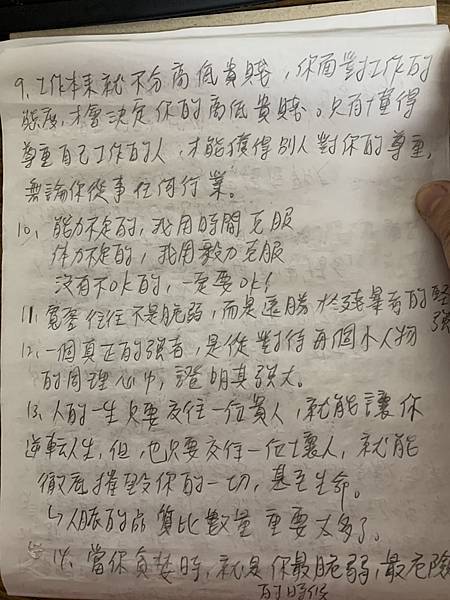 9、工作本來就不分高低貴賤，你面對工作的
態度，才會決定你的高低貴賤。只有懂得
尊重自己工作的人，才能獲得別人對你的尊重，
無論你從事任何行業。
10、能力不足的，我用時間克服
体力不足的，我用毅力克服
沒有不OK的，一定要OK！
11、寬恕往往不是脆弱，而是遠勝於殘暴者的堅
強
12、一個真正的強者，是從對待每個小人物
的同理心中，證明其強大。
13、人的一生只要交往一位貴人，就能讓你
逆転人生，但，也只要交往一位壞人，就能
徹底摧毀你的一切，甚至生命。
↳人脈的品質比數量重要太多了。
14、當你貪婪時，就是你最脆弱，最危險
的時候